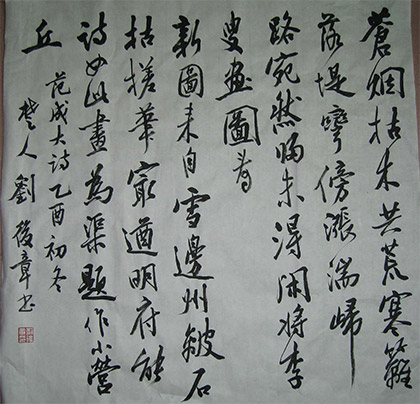 蒼烟枯木共荒寒籬
落堤彎傍漲湍歸
路宛然歸未得閑將李
叟畫圖看
新圖来自雪邊州皴石
枯槎筆最遒明府能
詩如此畫為渠題作小營
丘
范成大詩乙酉初冬
楚人劉後章书